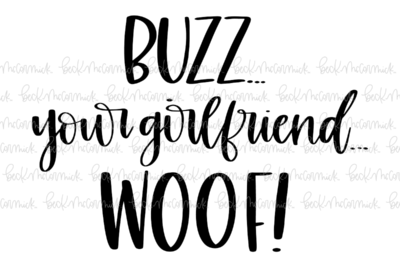 BUZZ...
your girlfriend...
WOOF!